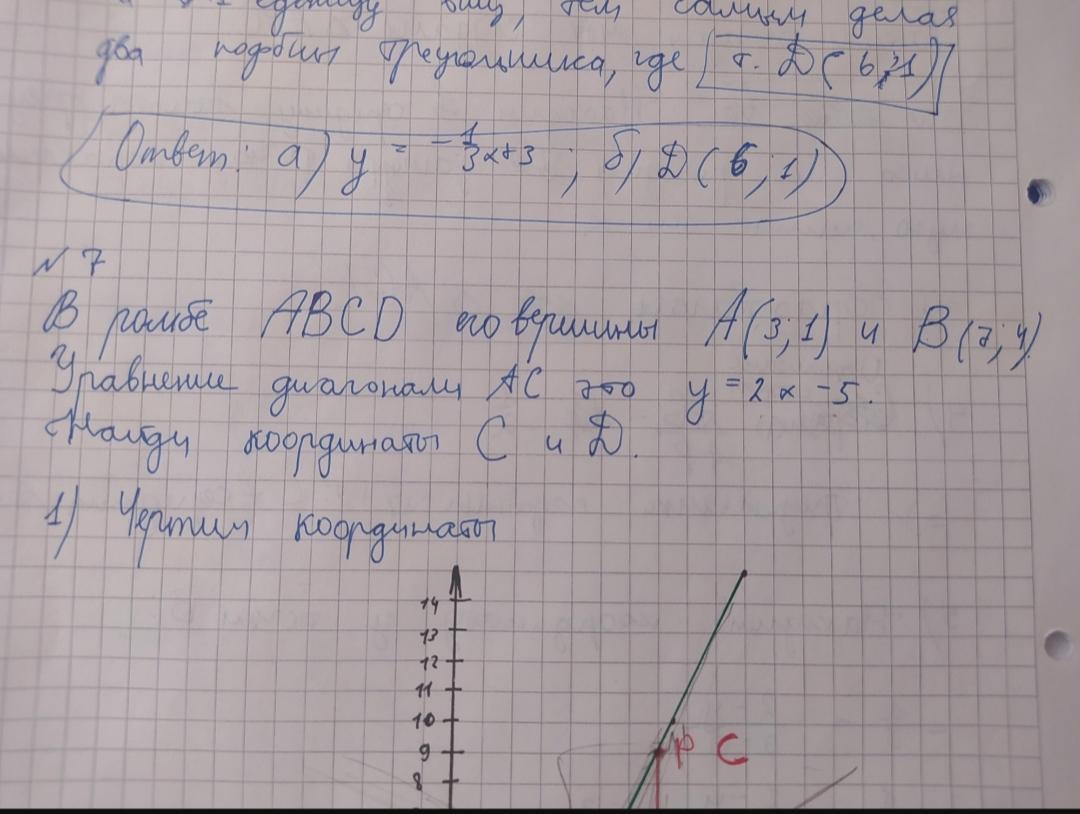 единицу вниз, тем самым делая
два подобных треугольника, где т. D(6;1)
Ответ: а) y = -1/3x+3 ; б) D(6;1)
N 7
В ромбе ABCD его вершины A(3;1) и B(7;4)
Уравнение диагонали AC это y = 2x -5.
Найди координаты C и D.
1) Чертим координаты
14
13
12
11
10
9 C
8